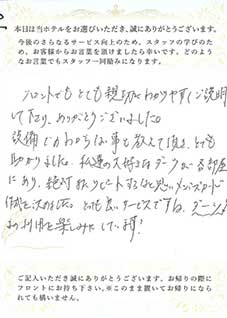 本日は当ホテルをお選びいただき、誠にありがとうございます。
今後のさらなるサービス向上のため、スタッフの学びのため、お客様からお言葉を頂けましたら幸いです。どのようなお言葉でもスタッフ一同励みになります。
フロントでもとても親切にわかりやすくご説明
して下さり、ありがとうございました。
設備でわからない事も教えて頂き、とても
助かりました。私達の大好きな
にあり、絶対 リピートする
作成 とても良いサービスですね。
の利用を楽しみにしています!
ご記入いただき誠にありがとうございます。お帰りの際に
フロントにお持ち下さい。※このまま置いてお帰りになら
れても構いません。